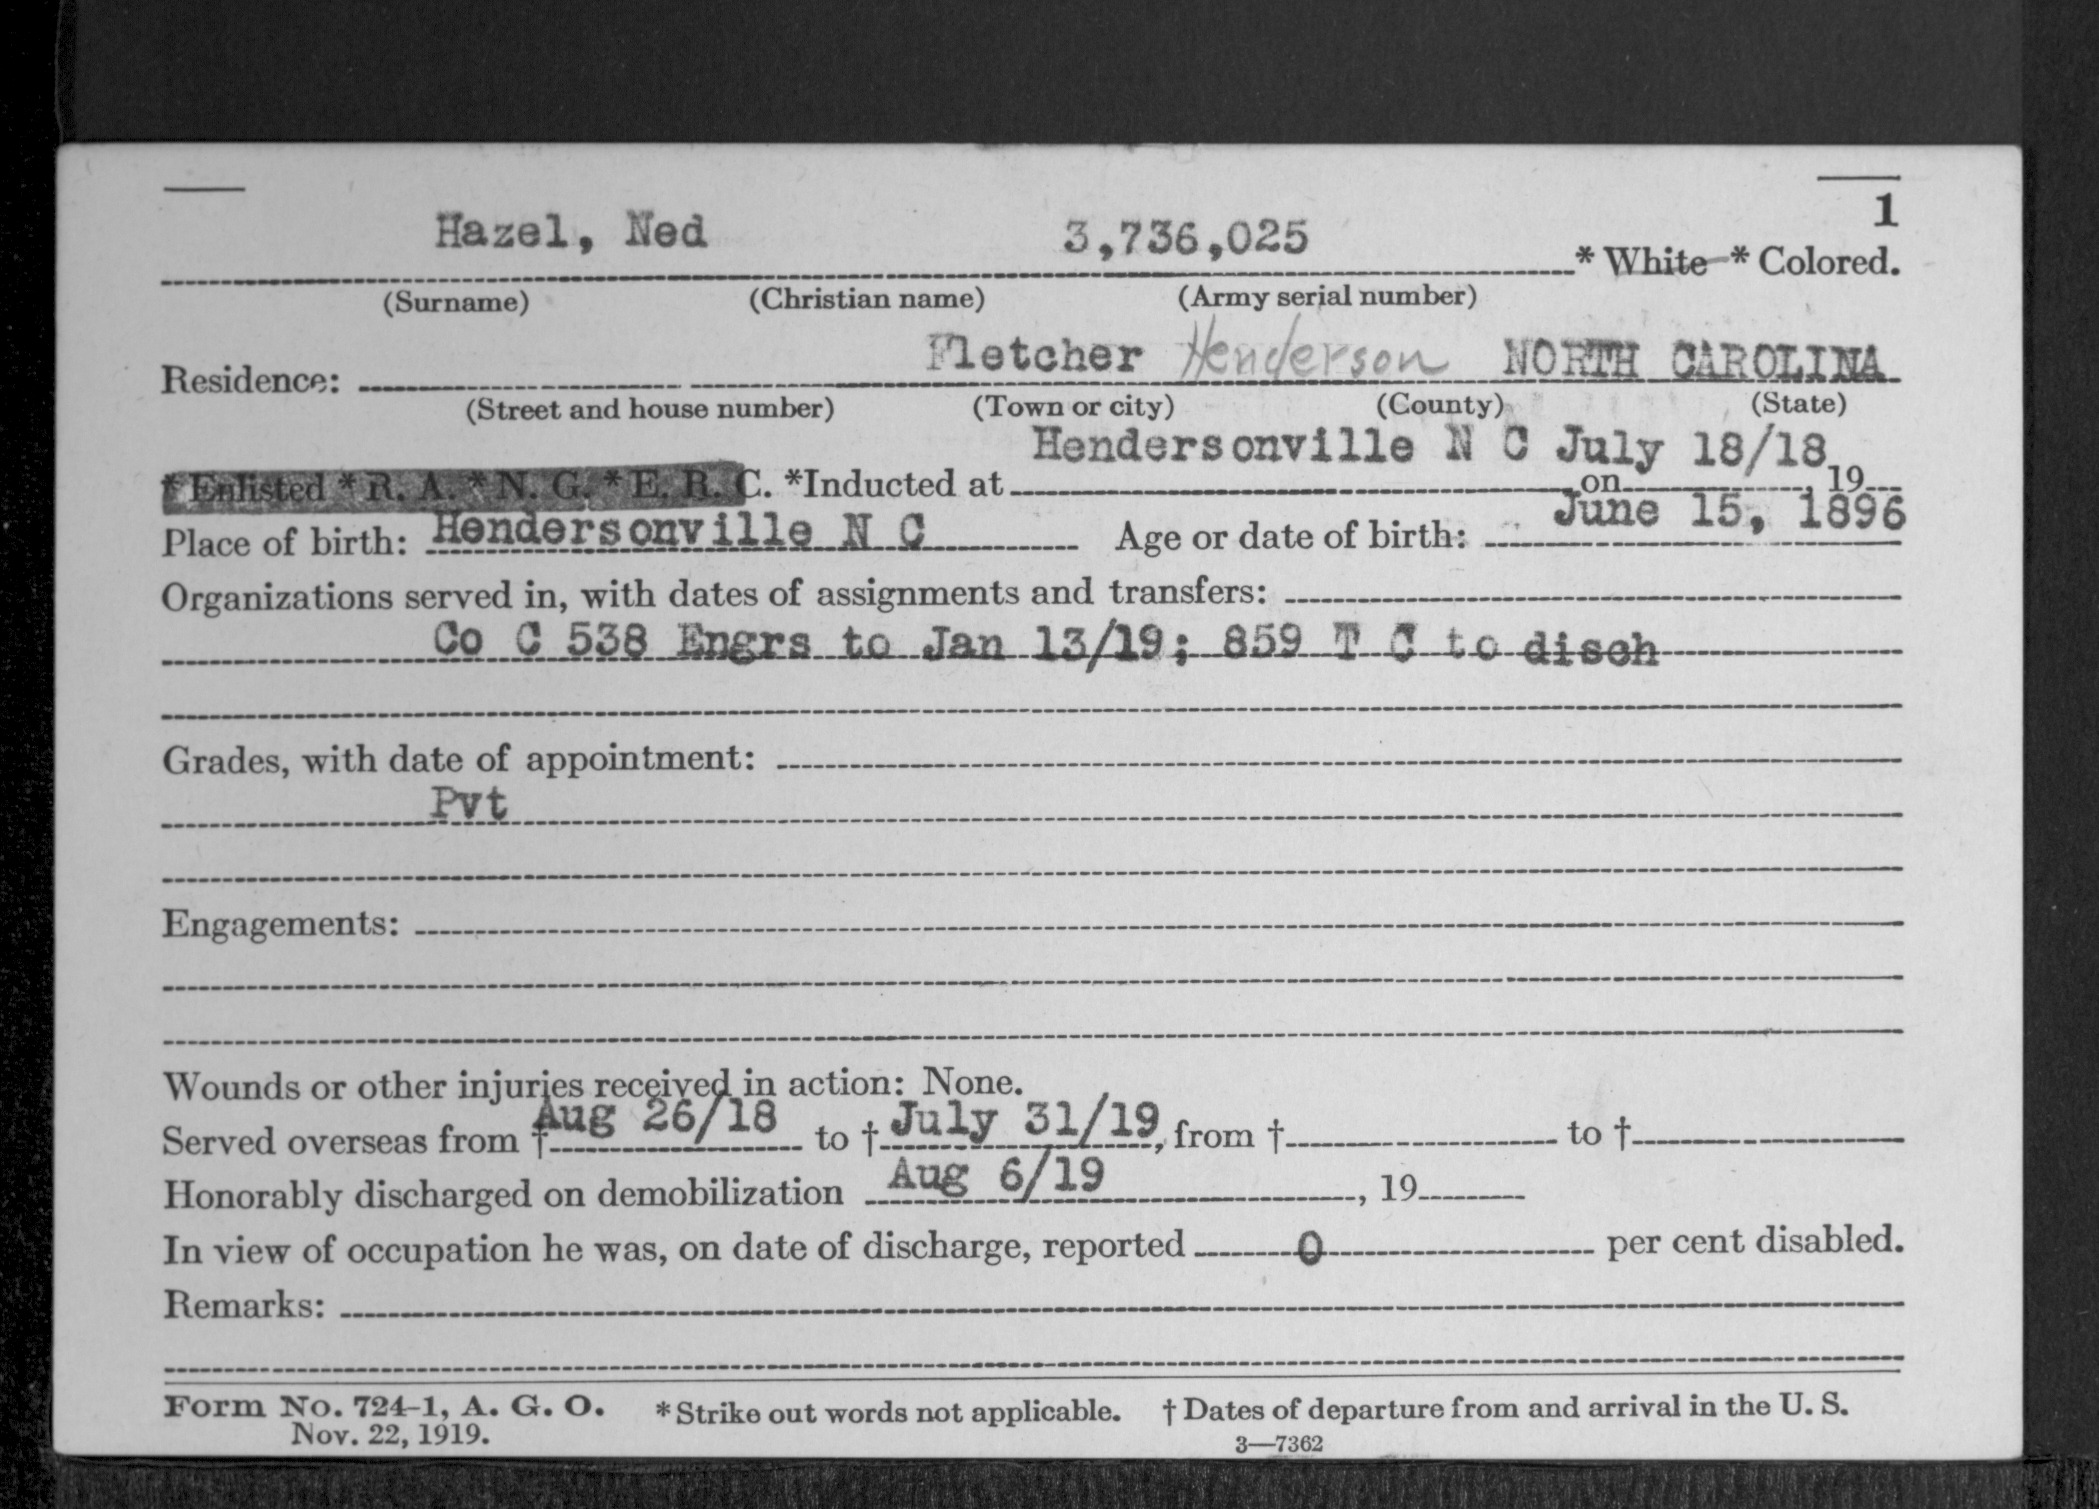 1
Hazel, Ned 3,736,025 * White * Colored.
(Surname) (Christian name) (Army serial number)
Residence: Fletcher Henderson NORTH CAROLINA
(Street and house number) (Town or city) (County) (State)
Hendersonville N C July 18/18
* Enlisted * R. A. * N. G. * E. R. C. *Inducted at on , 19
Place of birth: Hendersonville N C Age or date of birth: June 15, 1896
Organizations served in, with dates of assignments and transfers:
Co C 538 Engrs to Jan 13/19; 859 T C to disch
Grades, with date of appointment:
Pvt
Engagements:
Wounds or other injuries received in action: None.
Served overseas from † Aug 26/18 to † July 31/19, from † to †
Honorably discharged on demobilization Aug 6/19 , 19
In view of occupation he was, on date of discharge, reported 0 per cent disabled.
Remarks:
Form No. 724-1, A. G. O. * Strike out words not applicable. † Dates of departure from and arrival in the U. S.
Nov. 22, 1919. 3—7362